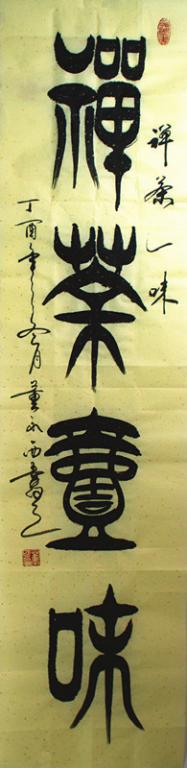 禪茶壹味
禅茶一味
丁酉年之冬月董永西書之